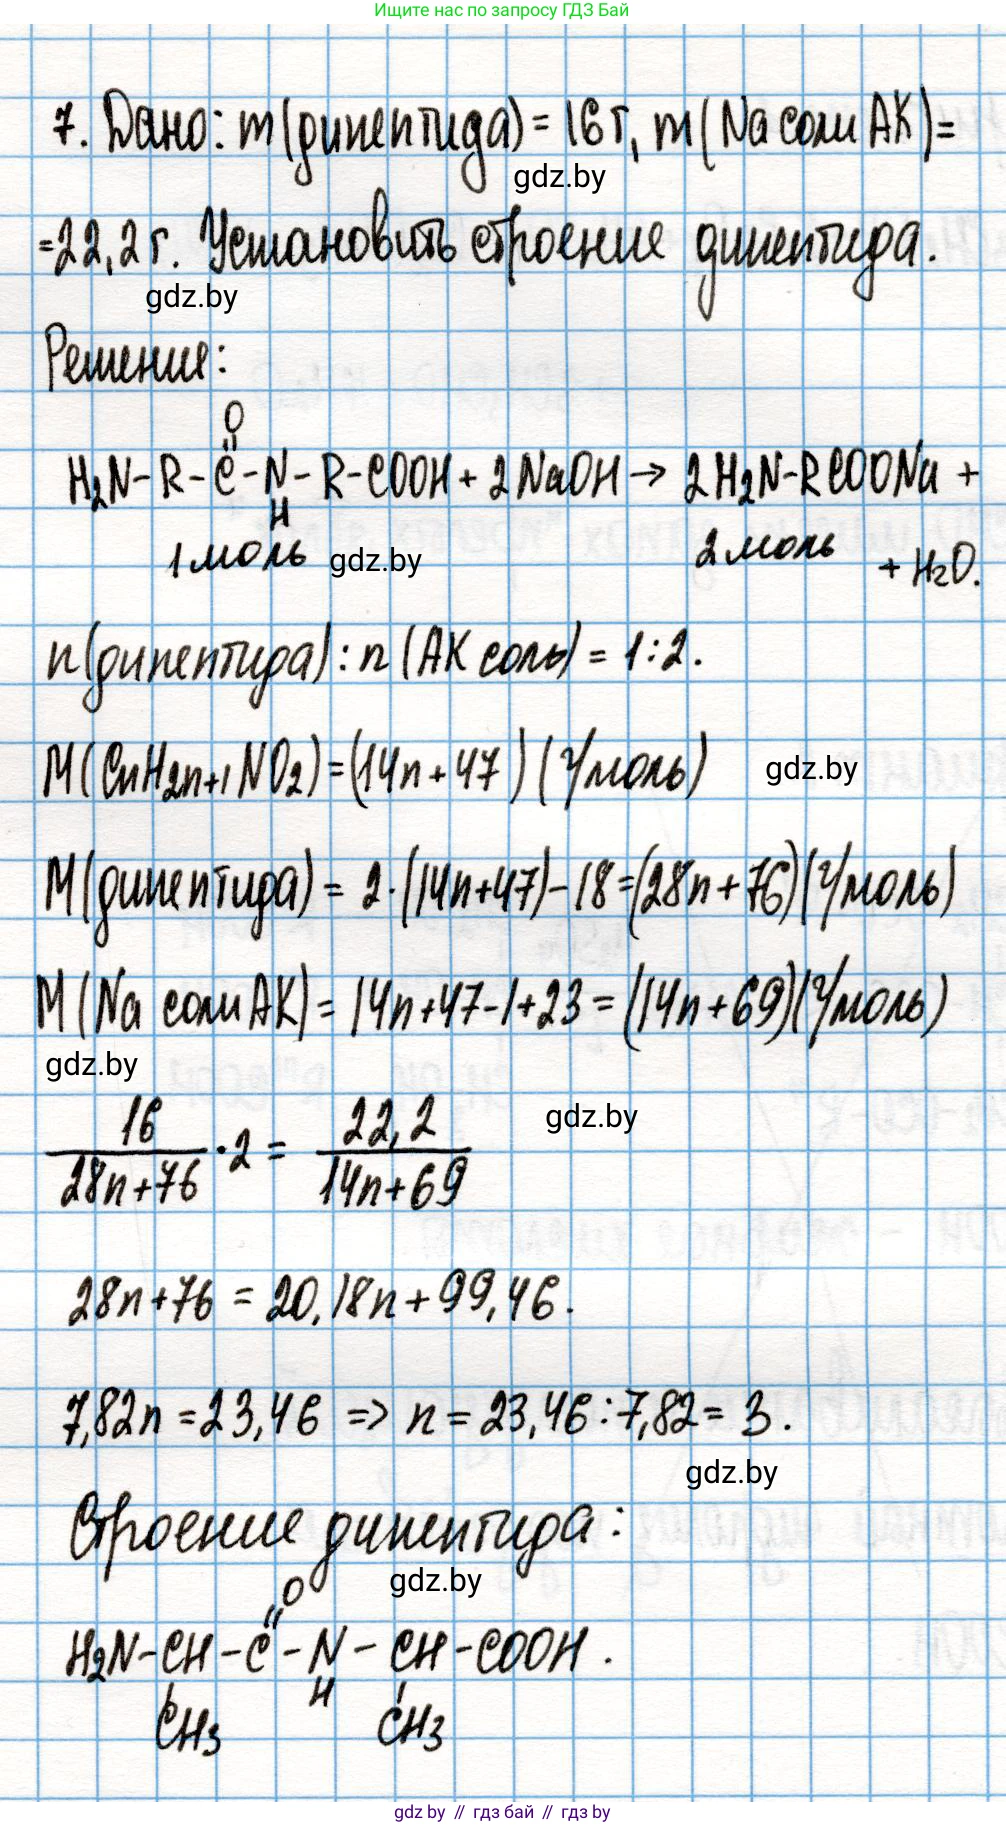 Ищите нас по запросу ГДЗ Бай
7. Дано: m(дипептида) = 16 г, m(Na соли АК) =
gdz.by
= 22,2 г. Установить строение дипептида.
gdz.by
Решение:
O
H₂N - R - C - N - R - COOH + 2NaOH → 2H₂N-RCOONa +
H
1 моль gdz.by 2 моль + H₂O.
n(дипептида) : n(АК соль) = 1:2.
M(CnH2n+1NO2) = (14n + 47) (г/моль) gdz.by
M(дипептида) = 2·(14n+47)-18=(28n+76)(г/моль)
M(Na соли АК) = 14n+47-1+23 = (14n+69)(г/моль)
gdz.by
16/(28n+76) · 2 = 22,2/(14n+69) gdz.by
28n+76 = 20,18n + 99,46.
7,82n = 23,46 => n = 23,46:7,82 = 3.
gdz.by
Строение дипептида:
gdz.by
O
H₂N-CH-C-N-CH-COOH.
H
CH3 CH3
gdz by // гдз бай // гдз by